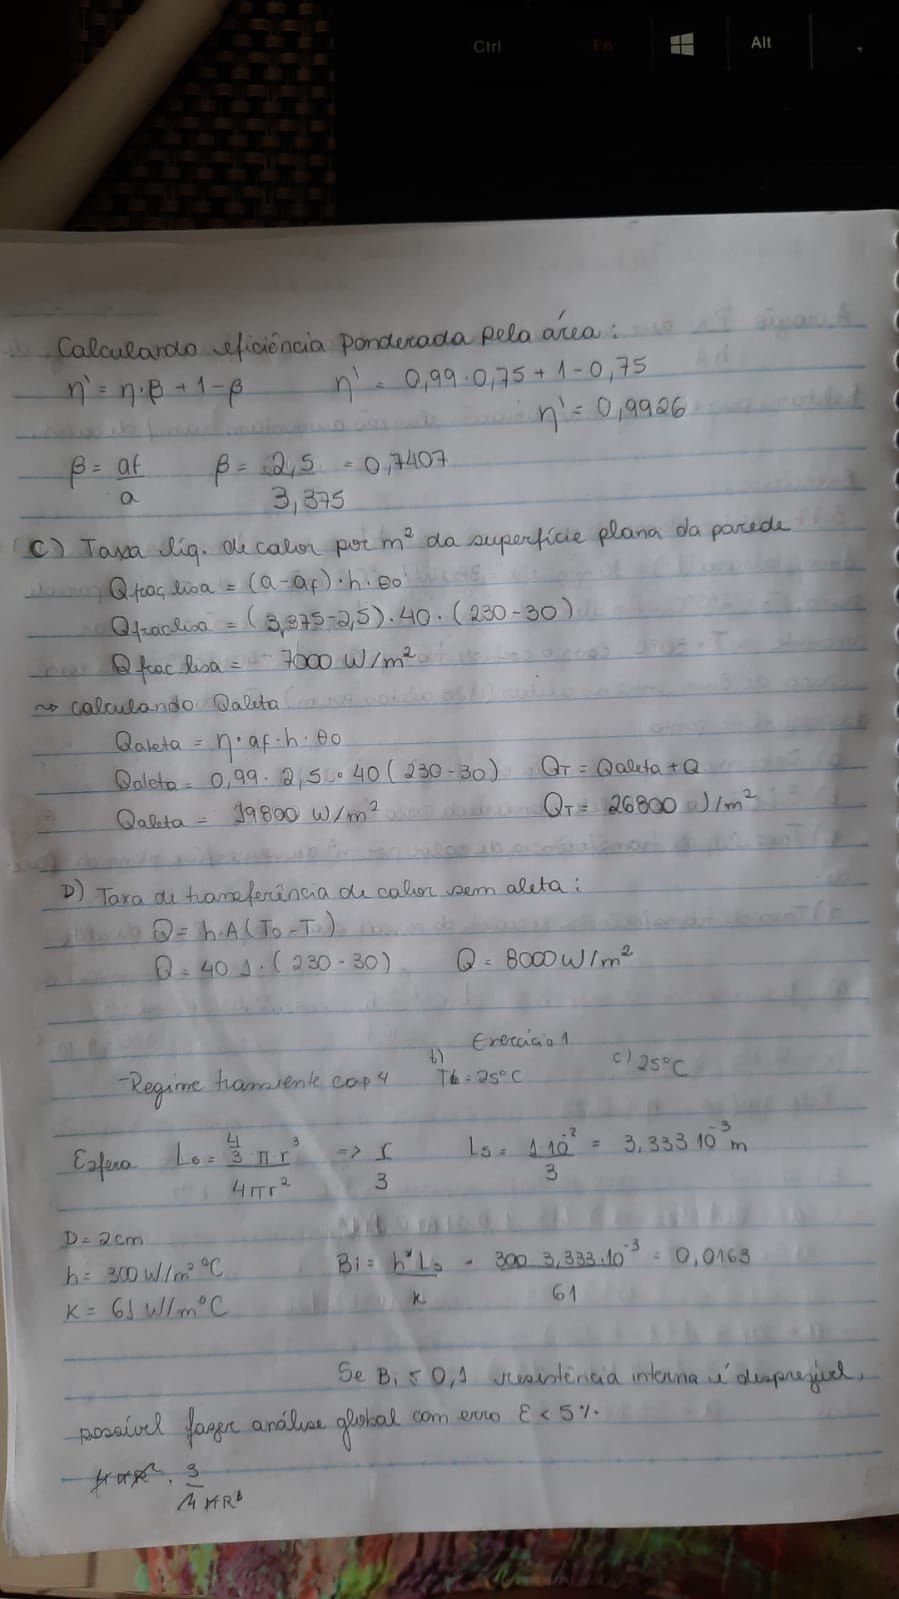 Ctrl Fn Alt
Calculando eficiência ponderada pela área:
η' = η·β + 1 - β η' = 0,99·0,75 + 1 - 0,75
η' = 0,9926
β = af/a β = 2,5/3,375 = 0,7407
C) Taxa líq. de calor por m² da superfície plana da parede
Q fraç lisa = (a - af)·h·θo
Q frac lisa = (3,375 - 2,5)·40·(230 - 30)
Q frac lisa = 7000 W/m²
~> calculando Qaleta
Qaleta = η·af·h·θo
Qaleta = 0,99·2,5·40(230-30) QT = Qaleta + Q
Qaleta = 19800 W/m² QT = 26800 W/m²
D) Taxa de transferência de calor sem aleta:
Q = h·A(To - T)
Q = 40 1·(230 - 30) Q = 8000 W/m²
Exercício 1
-Regime transiente cap 4 b) T = 25°C c) 25°C
Esfera Ls = 4/3 π r³ / 4πr² => r/3 Ls = 1 10⁻²/3 = 3,333 10⁻³ m
D = 2cm
h = 300 W/m² °C Bi = h*Ls/k = 300 3,333·10⁻³/61 = 0,0163
K = 61 W/m°C
Se Bi < 0,1 resistência interna é desprezível,
possível fazer análise global com erro ε < 5%.
4πR² · 3/4πR³